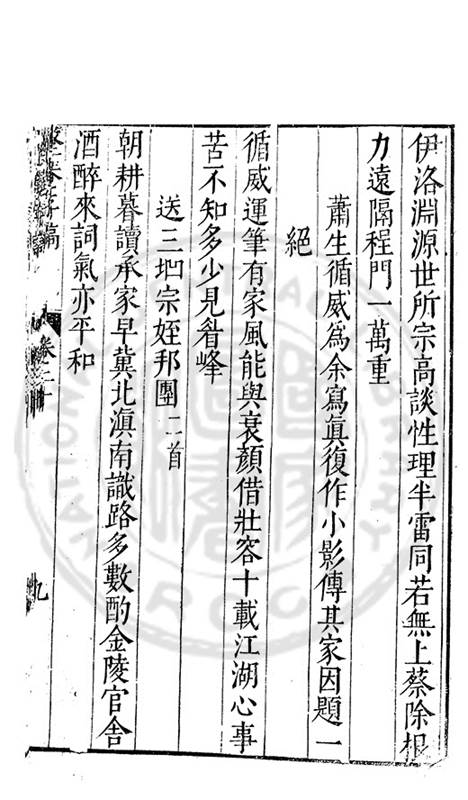 伊洛淵源世所宗高談性理半雷同若無上蔡除根
力遠隔程門一萬重
蕭生循威爲余寫眞復作小影傳其家因題一
絕
循威運筆有家風能與衰顏借壯容十載江湖心事
苦不知多少見眉峰
送三𡉏宗姪邦團二首
朝耕暮讀承家早冀北滇南識路多數酌金陵官舍
酒醉來詞氣亦平和
卷二十
九